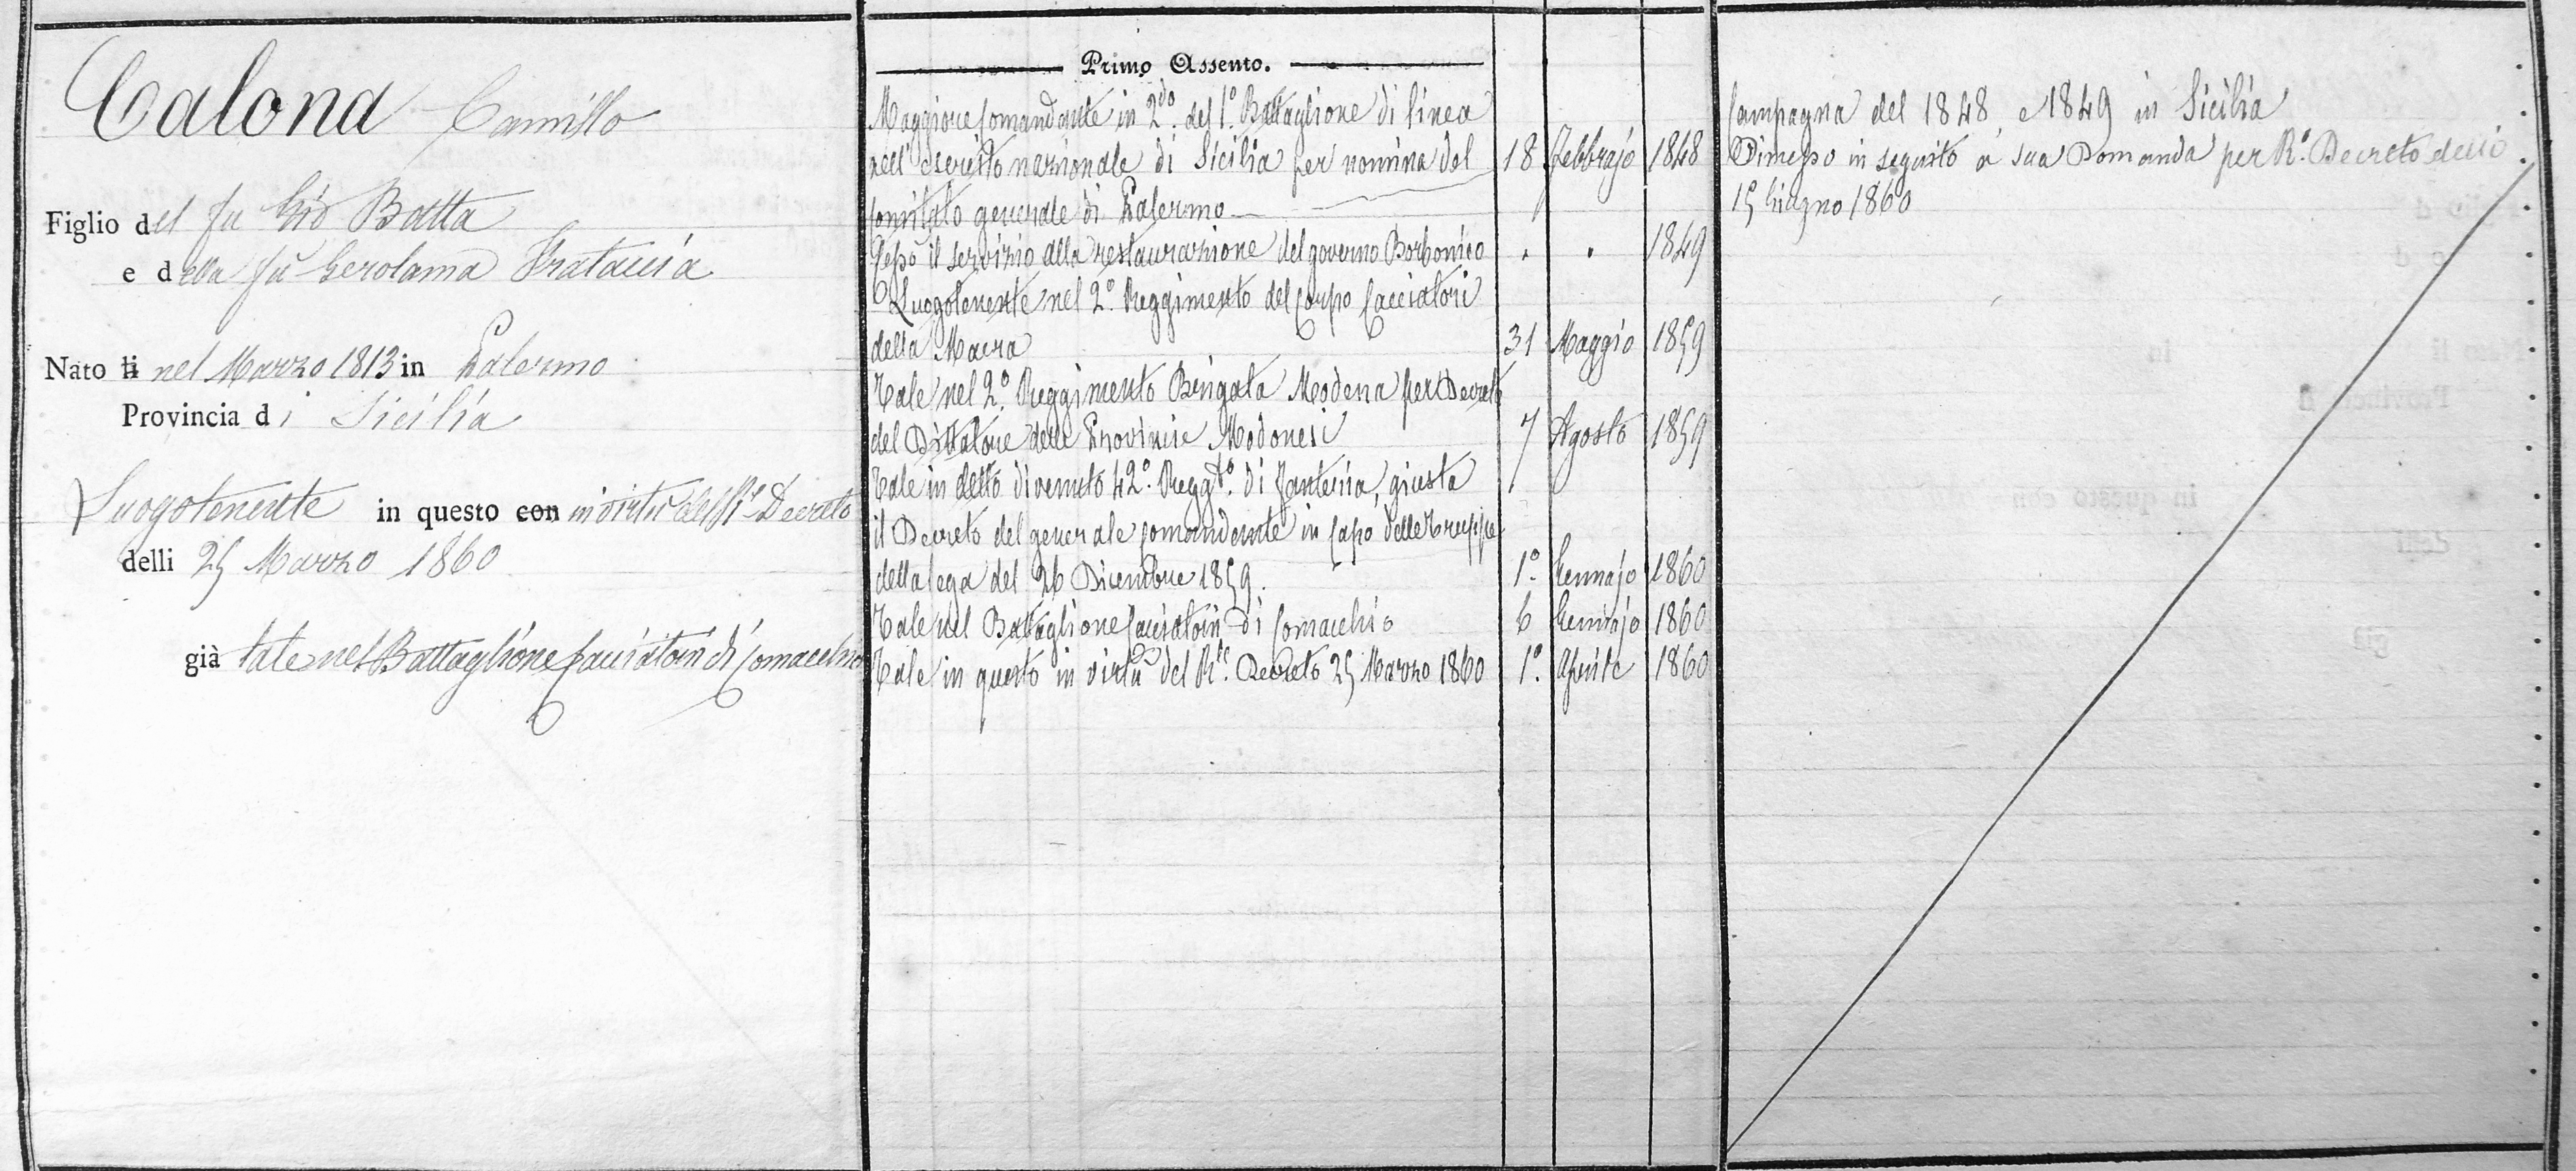 Calona Camillo
Figlio del fu Gio Batta
e della fu Gerolama Frataccia
Nato li nel Marzo 1813 in Palermo
Provincia di Sicilia
Luogotenente in questo con in virtù del R.º Decreto
delli 25 Marzo 1860
già tale nel Battaglione Cacciatori di Comacchio
Primo Assento.
Maggiore Comandante in 2do. del 1.º Battaglione di linea
nell'esercito nazionale di Sicilia per nomina del 18 Febbrajo 1848
Comitato generale di Palermo
Cessò il servizio alla restaurazione del governo Borbonico " " 1849
Luogotenente nel 2.º Reggimento del Corpo Cacciatori
della Macra 31 Maggio 1859
Tale nel 2.º Reggimento Brigata Modena per Decreto
del Dittatore delle Provincie Modonesi 7 Agosto 1859
Tale in detto divenuto 42.º Reggto. di Fanteria, giusta
il Decreto del generale Comandante in Capo delle truppe
della lega del 26 Dicembre 1859. 1.º Gennajo 1860
Tale nel Battaglione Cacciatori di Comacchio 6 Gennajo 1860
Tale in questo in virtù del R.º Decreto 25 Marzo 1860 1.º Aprile 1860
Campagna del 1848 e 1849 in Sicilia
Dimesso in seguito a sua Domanda per R.º Decreto delli
15 Giugno 1860